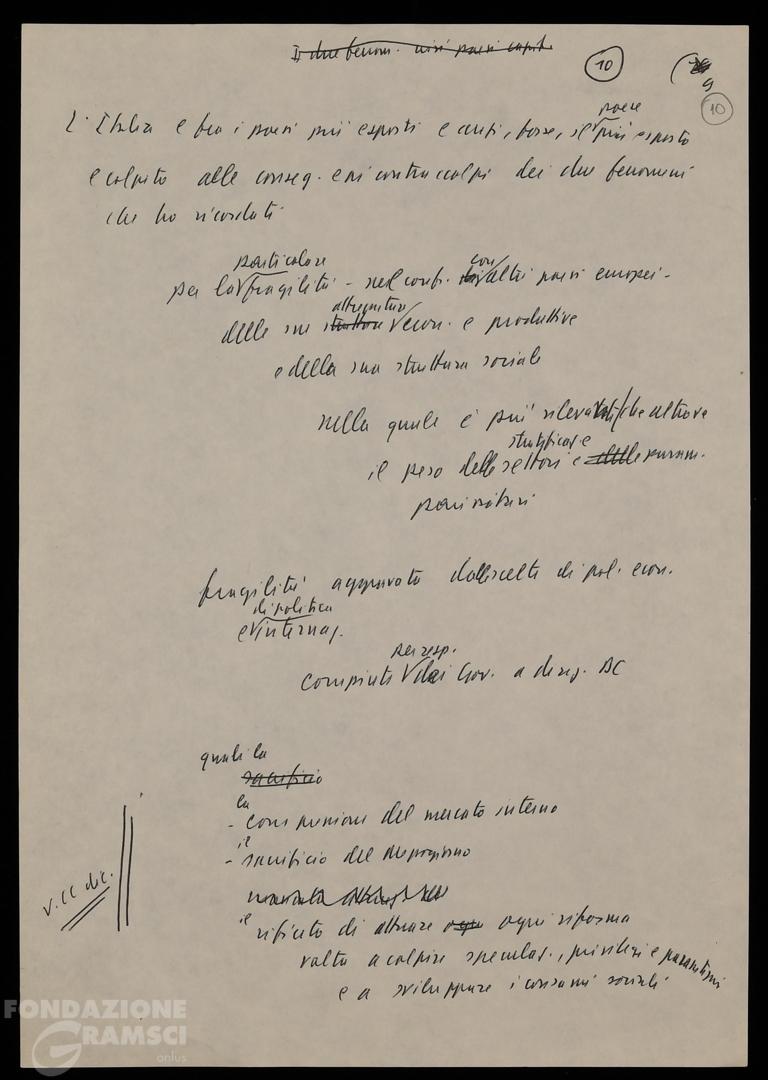 I due fenom. 
10
9
10
L'Italia è fra i paesi più esposti e anzi, forse, il paese più esposto
e colpito alle conseg. e ai contraccolpi dei due fenomeni
che ho ricordati
per la particolare fragilità - nel conf. con altri paesi europei -
delle sue strutture attrezzature econ. e produttive
e della sua struttura sociale
nella quale è più rilevante che altrove
il peso delle stratificaz. e settori e delle puram.
parassitari
fragilità aggravata dalle scelte di pol. econ.
e di politica internaz.
compiute per resp. dei Gov. a direz. DC
quali la
sacrificio
- la compressione del mercato interno
- il sacrificio del Mezzogiorno
il rifiuto di attuare ogni ogni riforma
volta a colpire speculaz., privilegi e parassitismi
e a sviluppare i consumi sociali
V. CC dic.
FONDAZIONE
GRAMSCI
onlus